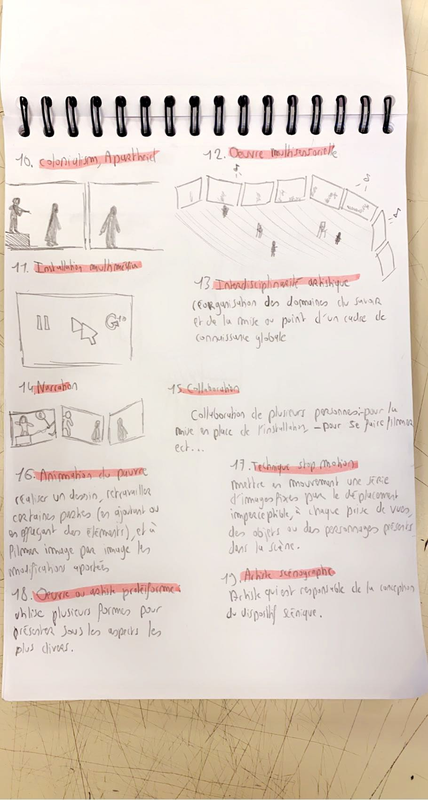 10. Colonialism, Apartheid
12. Oeuvre multisensorielle
11. Installation multimédia
10
13. Interdisciplinarité artistique
réorganisation des domaines du savoir
et de la mise au point d'un cadre de
connaissance globale
14. Narration
15. Collaboration
Collaboration de plusieurs personnes pour la
mise en place de l'installation, pour se faire filmer
ect...
16. Animation du pauvre
réaliser un dessin, retravailler
certaines parties (en ajoutant ou
en effaçant des éléments), et à
filmer image par image les
modifications apportés
17. Technique stop motion
mettre en mouvement une série
d'images fixes par le déplacement
imperceptible, à chaque prise de vues,
des objets ou des personnages présents
dans la scène.
18. Oeuvre ou artiste protéiforme
utilise plusieurs formes pour
présenter sous les aspects les
plus divers.
19. Artiste scénographe
Artiste qui est responsable de la conception
du dispositif scénique.